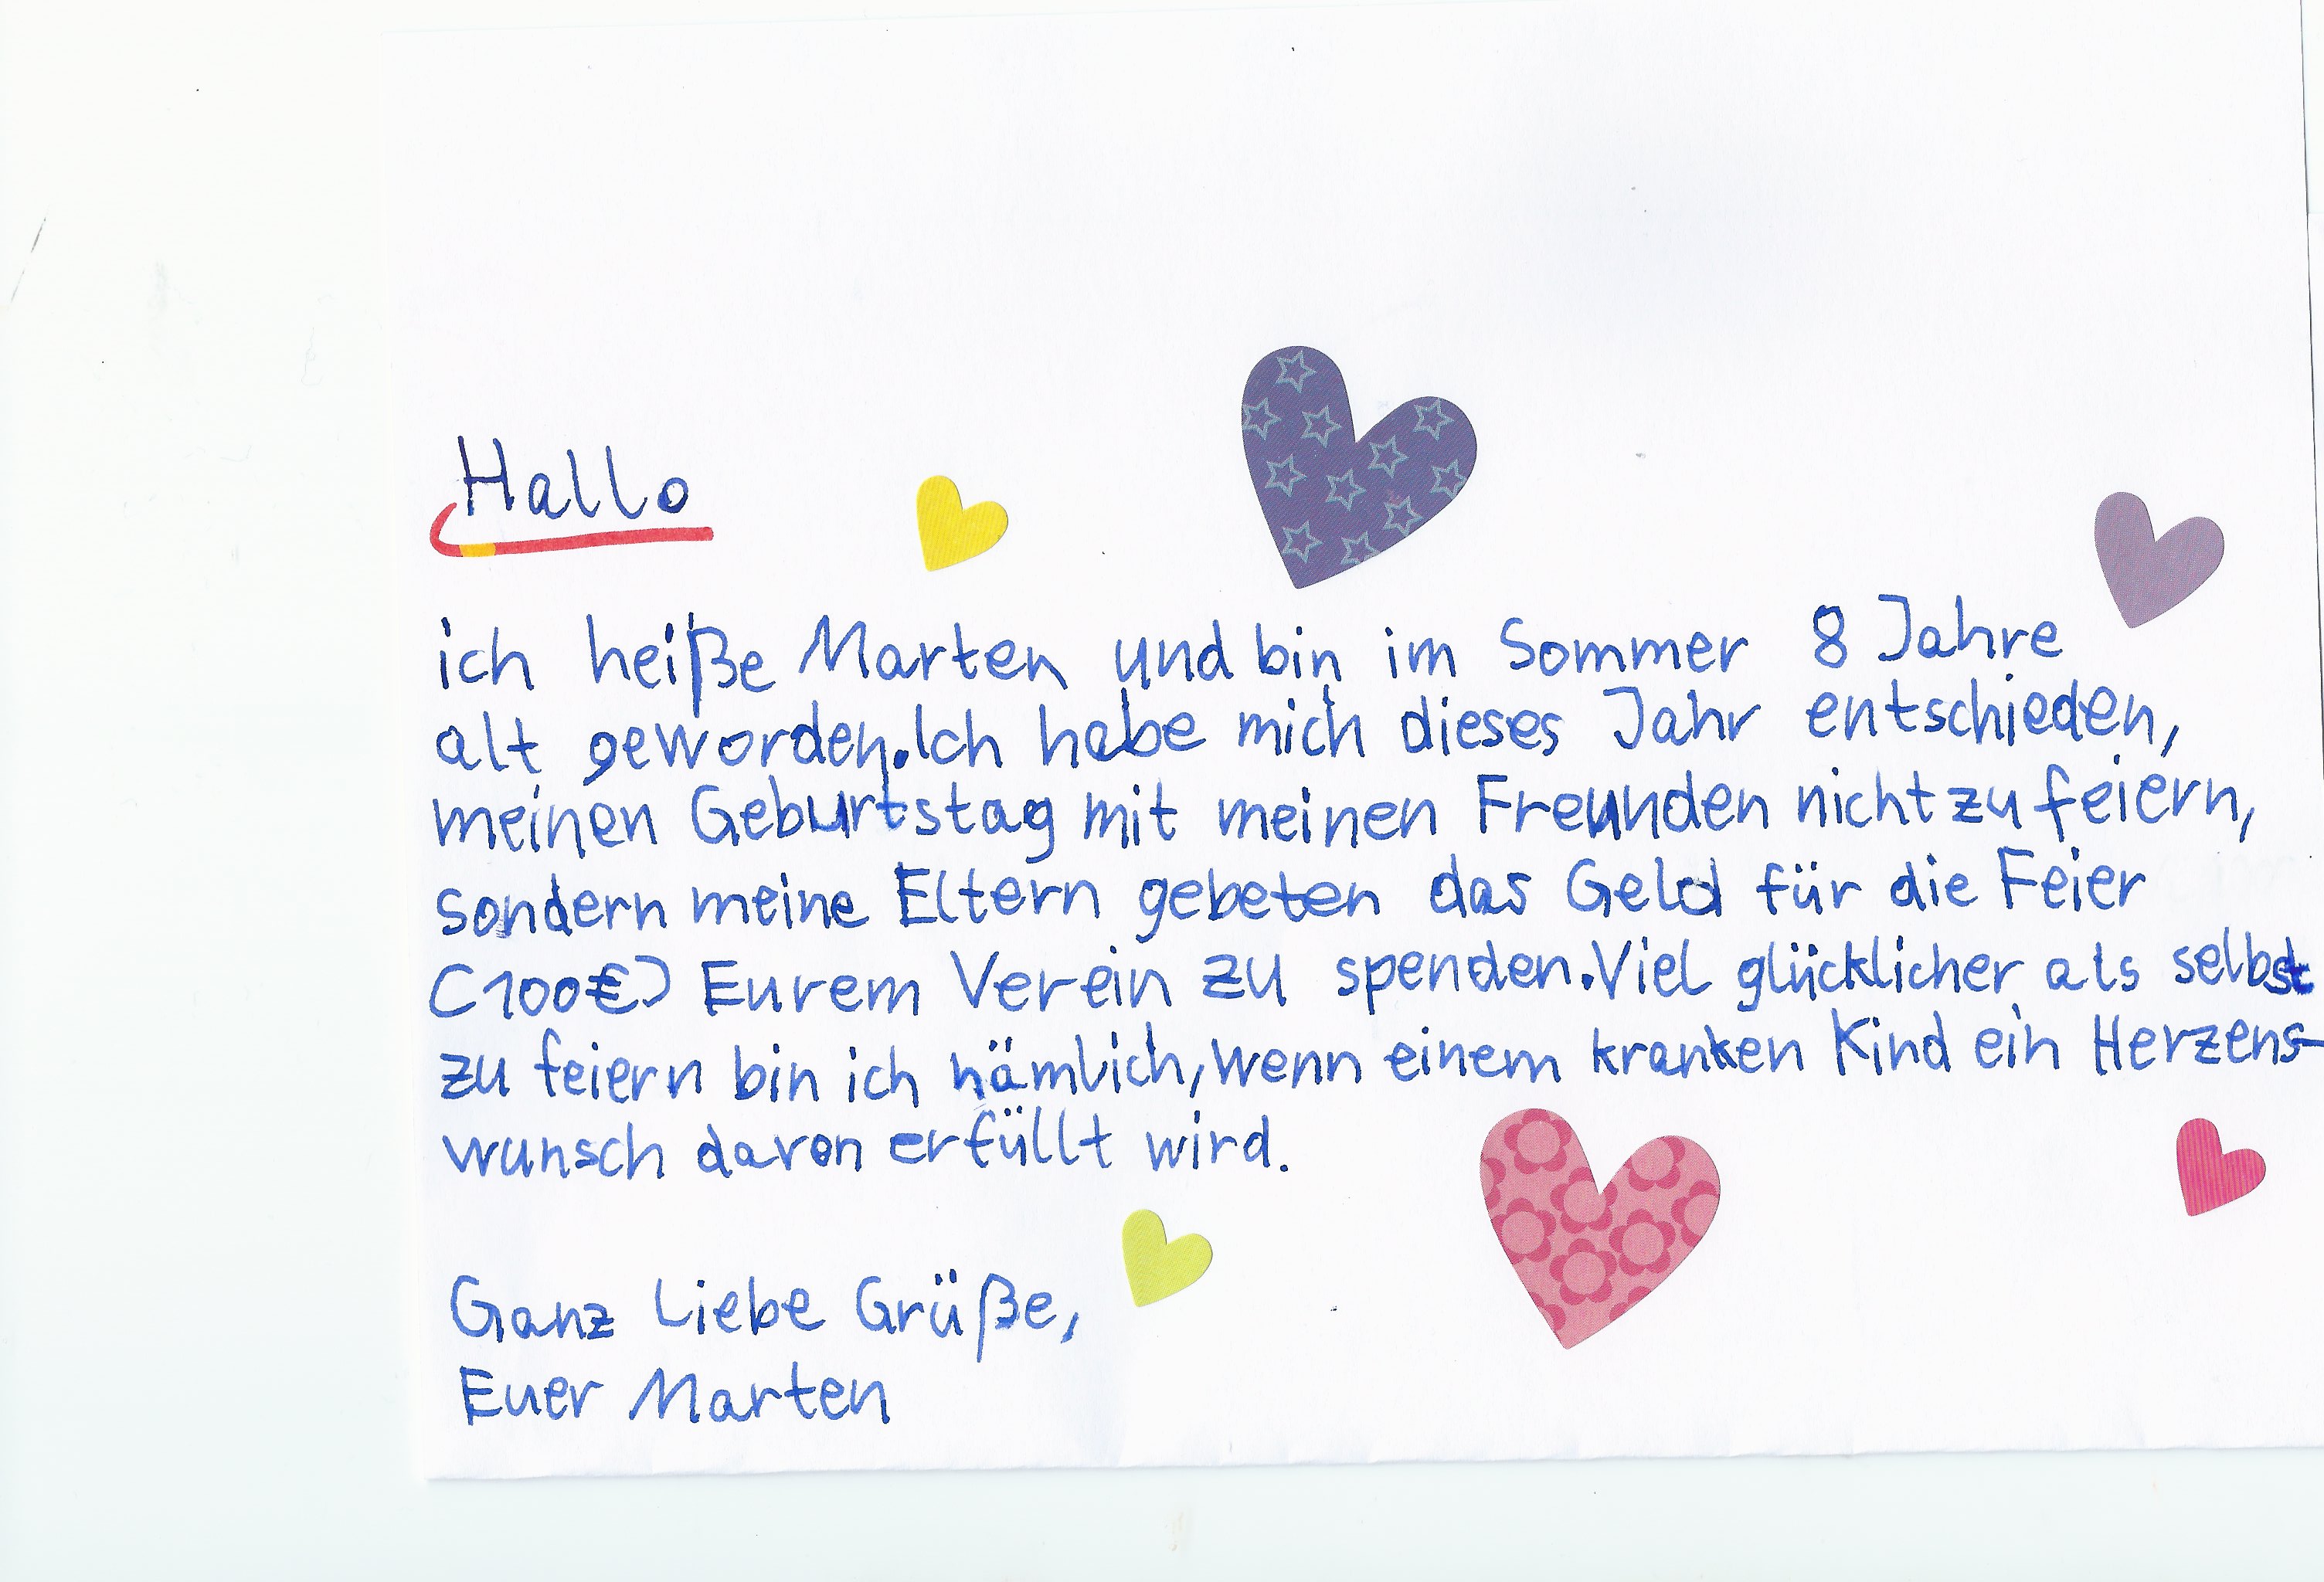 Hallo
ich heiße Marten und bin im Sommer 8 Jahre
alt geworden. Ich habe mich dieses Jahr entschieden,
meinen Geburtstag mit meinen Freunden nicht zu feiern,
sondern meine Eltern gebeten das Geld für die Feier
(100€) Eurem Verein zu spenden. Viel glücklicher als selbst
zu feiern bin ich nämlich, wenn einem kranken Kind ein Herzens-
wunsch davon erfüllt wird.
Ganz Liebe Grüße,
Euer Marten